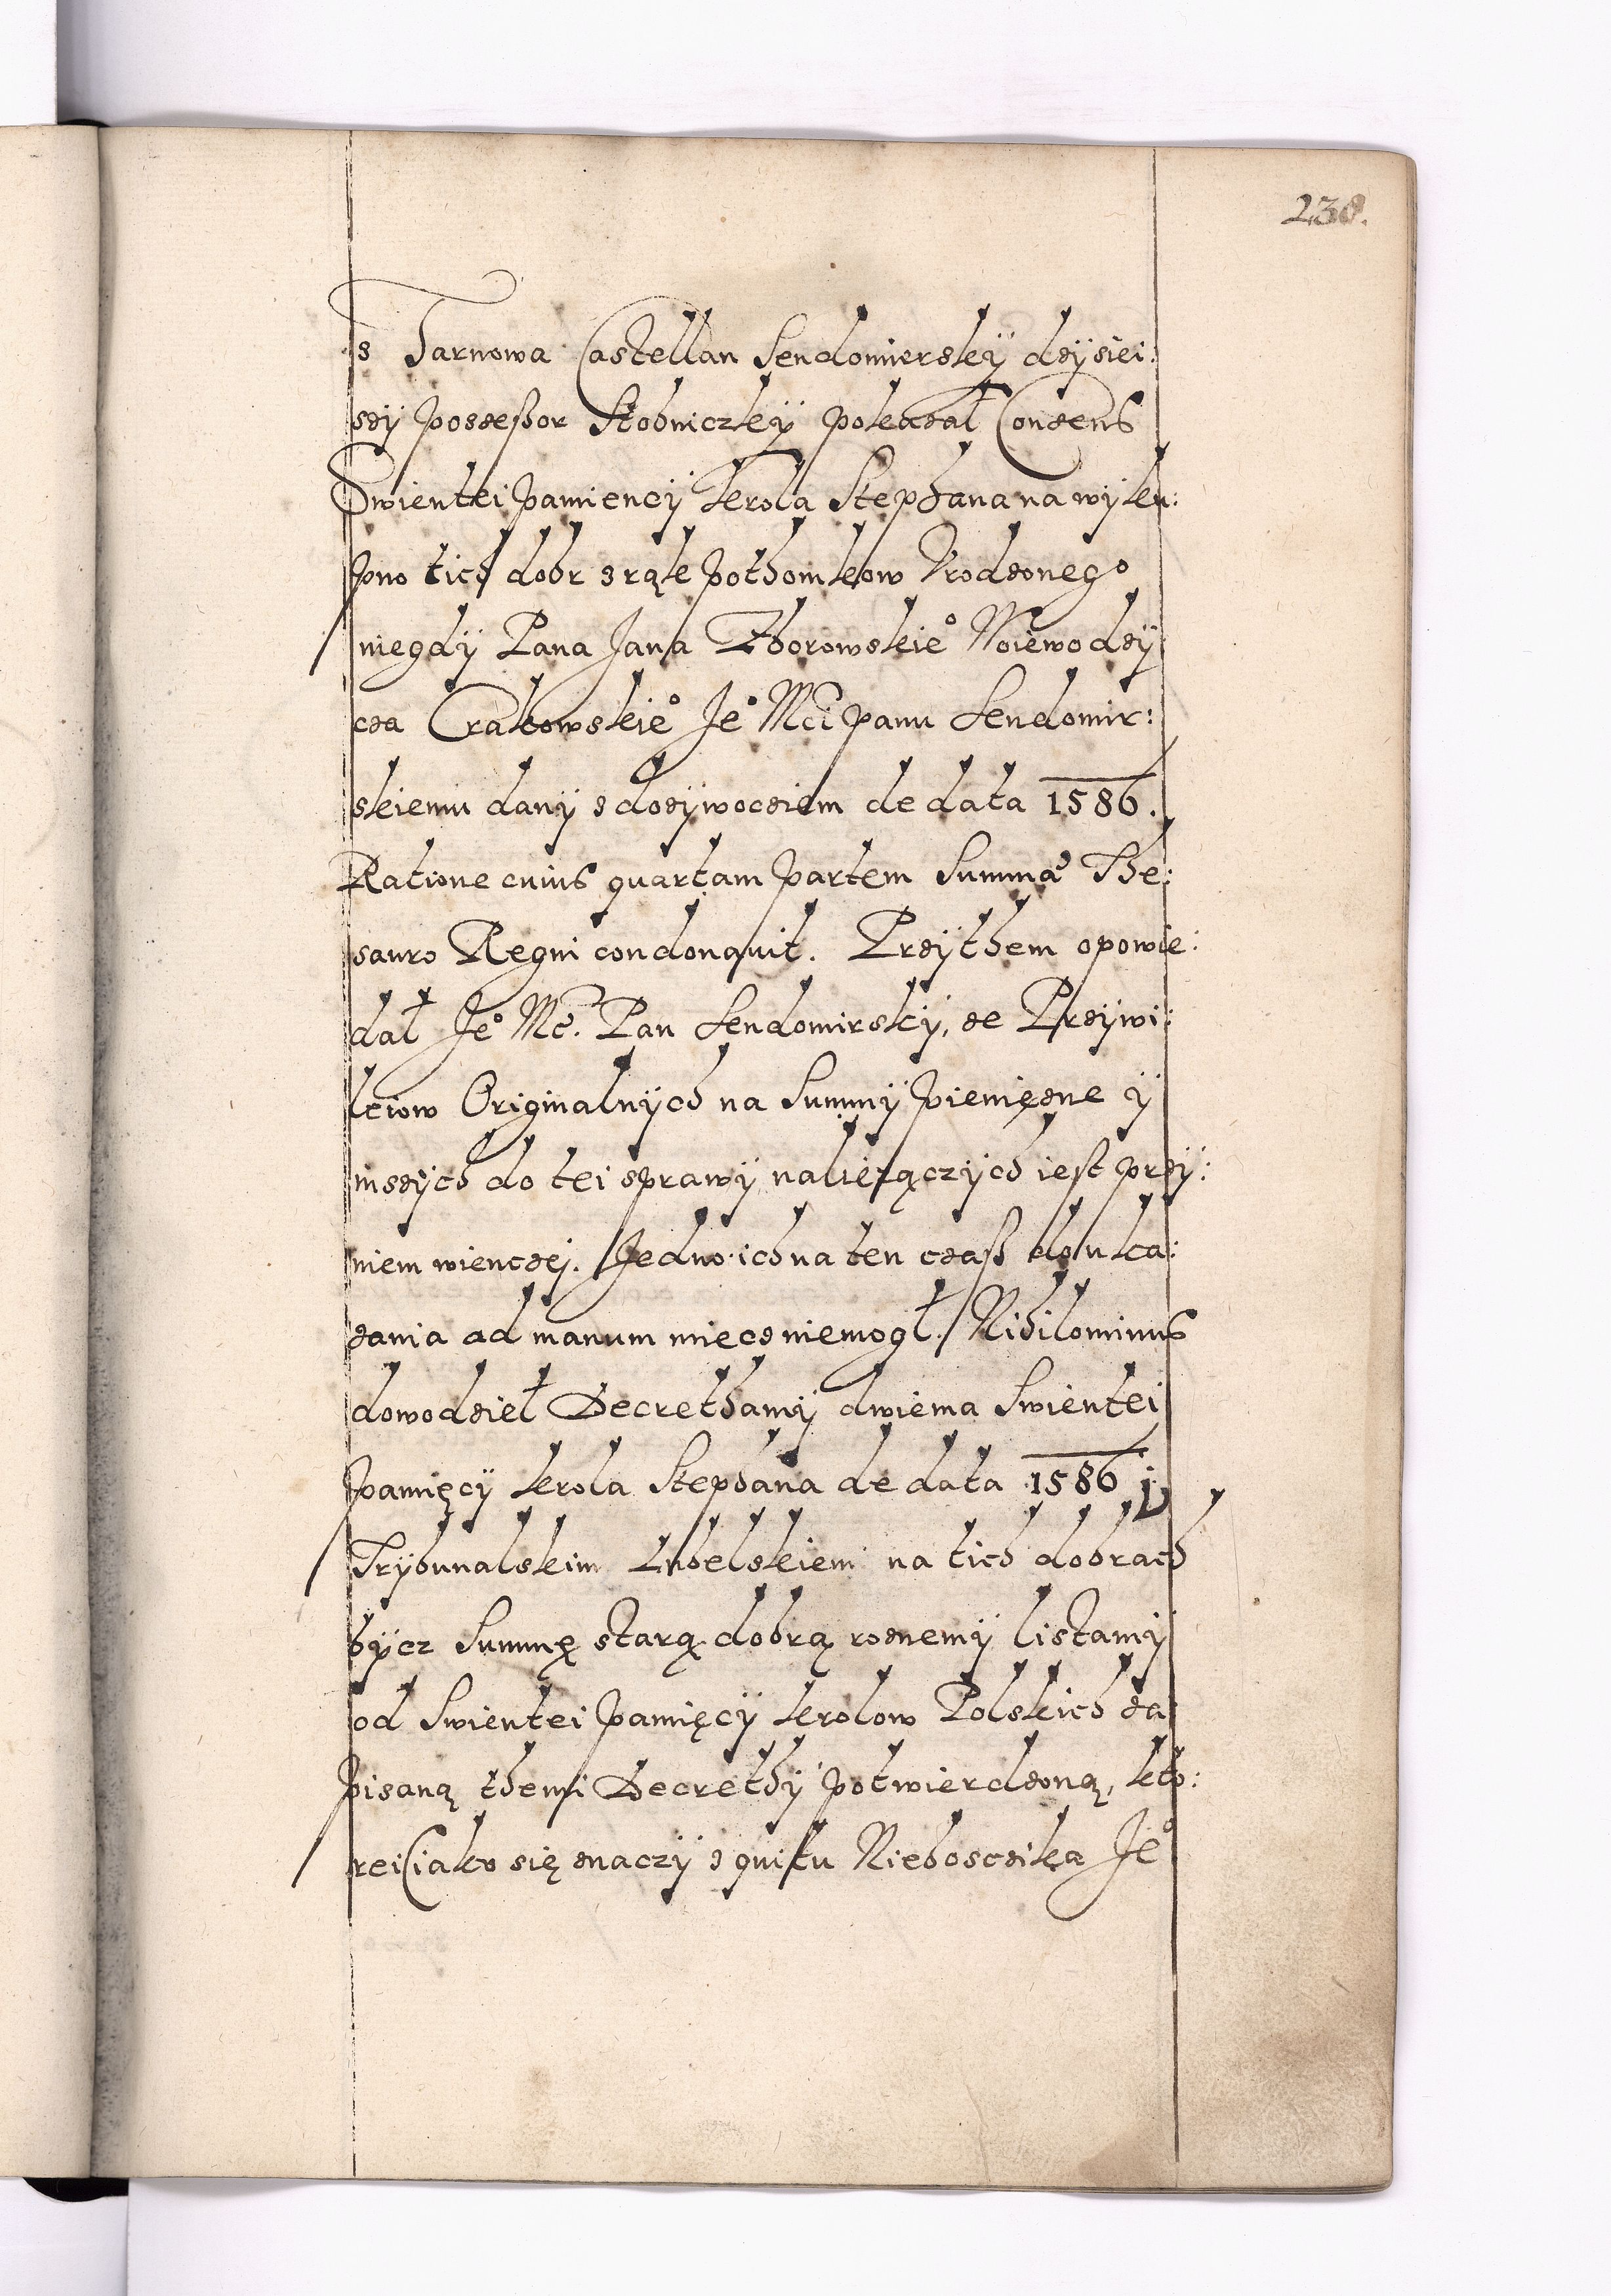 238.
z Tarnowa Castellan Sendomierskÿ dzÿsiei:
szÿ posseßor Stobniczkÿ pokazał Consens
Swientei pamiencÿ krola Stephana na wÿku:
pno tich dobr z rąk pothomkow Vrodzonego
niegdÿ Pana Jana Zborowskie° Woiewodzÿ
cza Crakowskie° Je° Mci panu Sendomir:
skiemu danÿ z dozÿwociem de data 1586.
Ratione cuius quartam partem Summæ The:
sauro Regni condonauit. Przÿthem opowie:
dał Je° Mc. Pan Sendomirskÿ, ze Przÿwi:
leiow Originalnÿch na Summÿ pieniężne ÿ
inszÿch do tei sprawÿ nalieżączÿch iest przÿ:
niem wienczej. Jedno ich na ten czaß do uka:
zania ad manum miecz niemogł. Nihilominus
dowodzieł Decrethamÿ dwiema Swientei
pamięcÿ krola Stephana de data 1586 ÿ
Trÿbunalskim Lubelskiem na tich dobrach
bÿcz Summę starą dobrą roznemÿ listamÿ
od Swientei pamięcÿ krolow Polskich za
pisaną themi Decrethÿ potwierdzoną, kto:
rei (iako się znaczÿ z quitu Nieboszczika Je°